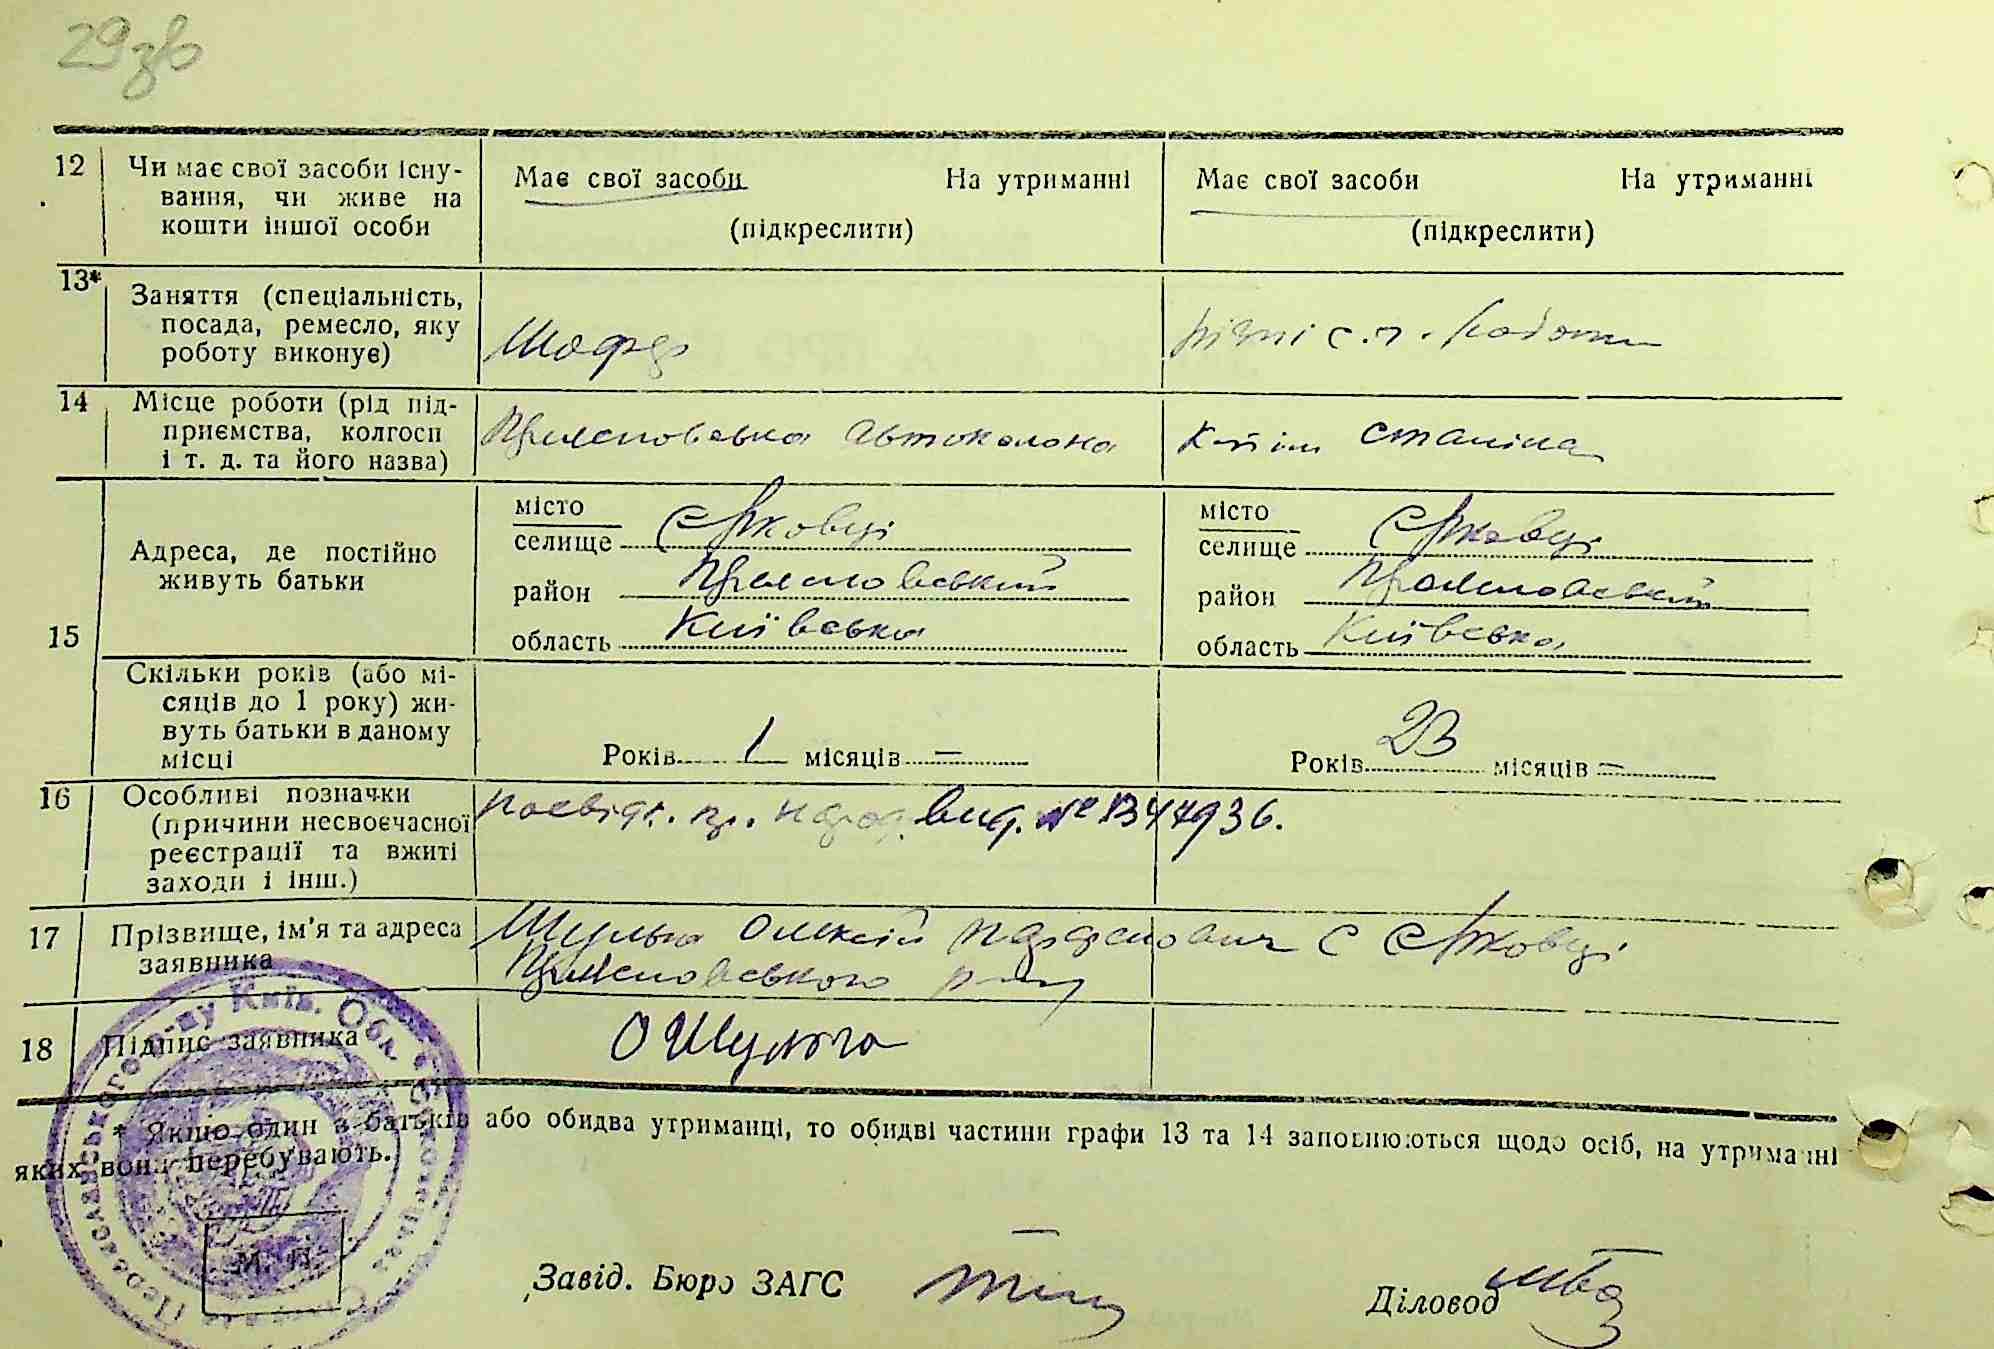 29зв
12 Чи має свої засоби існу-
вання, чи живе на
кошти іншої особи
Має свої засоби На утриманні
(підкреслити)
Має свої засоби На утриманні
(підкреслити)
13* Заняття (спеціальність,
посада, ремесло, яку
роботу виконує)
Шофер
різні с.г. роботи
14 Місце роботи (рід під-
приємства, колгосп
і т. д. та його назва)
автоколона
Сталіна
15 Адреса, де постійно
живуть батьки
місто
селище Єрковці
район
область Київська
місто
селище Єрковці
район
область Київська
Скільки років (або мі-
сяців до 1 року) жи-
вуть батьки в даному
місці
Років 1 місяців —
Років 23 місяців —
16 Особливі позначки
(причини несвоєчасної
реєстрації та вжиті
заходи і інш.)
посвідч. пр. народ. вид. №
17 Прізвище, ім'я та адреса
заявника
Шульга Олексій с Єрковці
18 Підпис заявника
О Шульга
* Якщо один з батьків або обидва утриманці, то обидві частини графи 13 та 14 заповнюються щодо осіб, на утриманні
яких вони перебувають.
М. П.
Завід. Бюро ЗАГС
Діловод